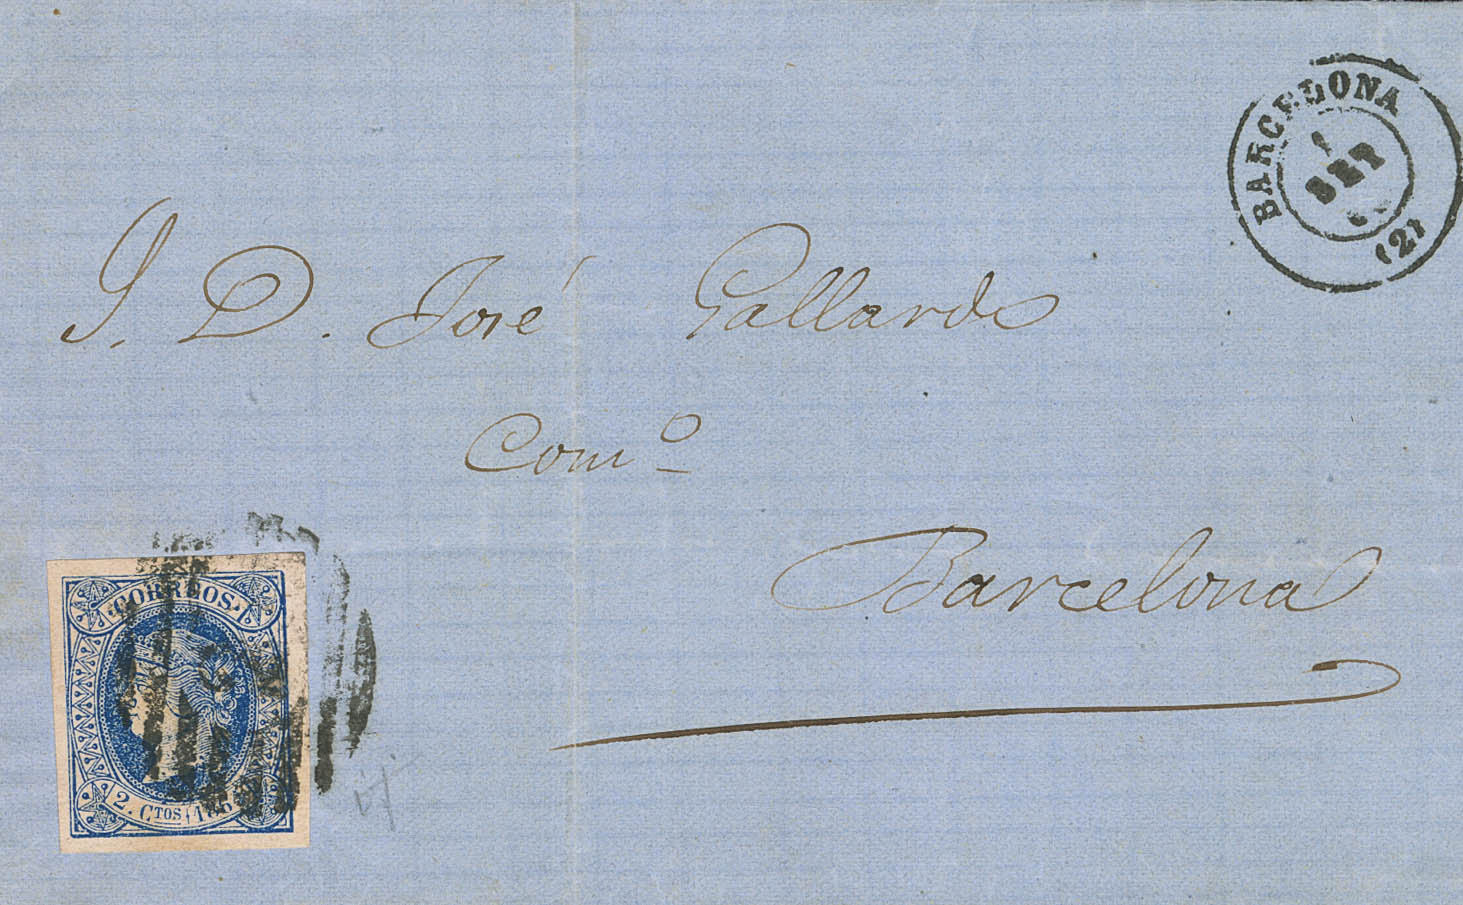 BARCELONA
1
SET
(2)
S. D. José Gallardo
Comº
Barcelona
CORREOS
2. CTOS 186